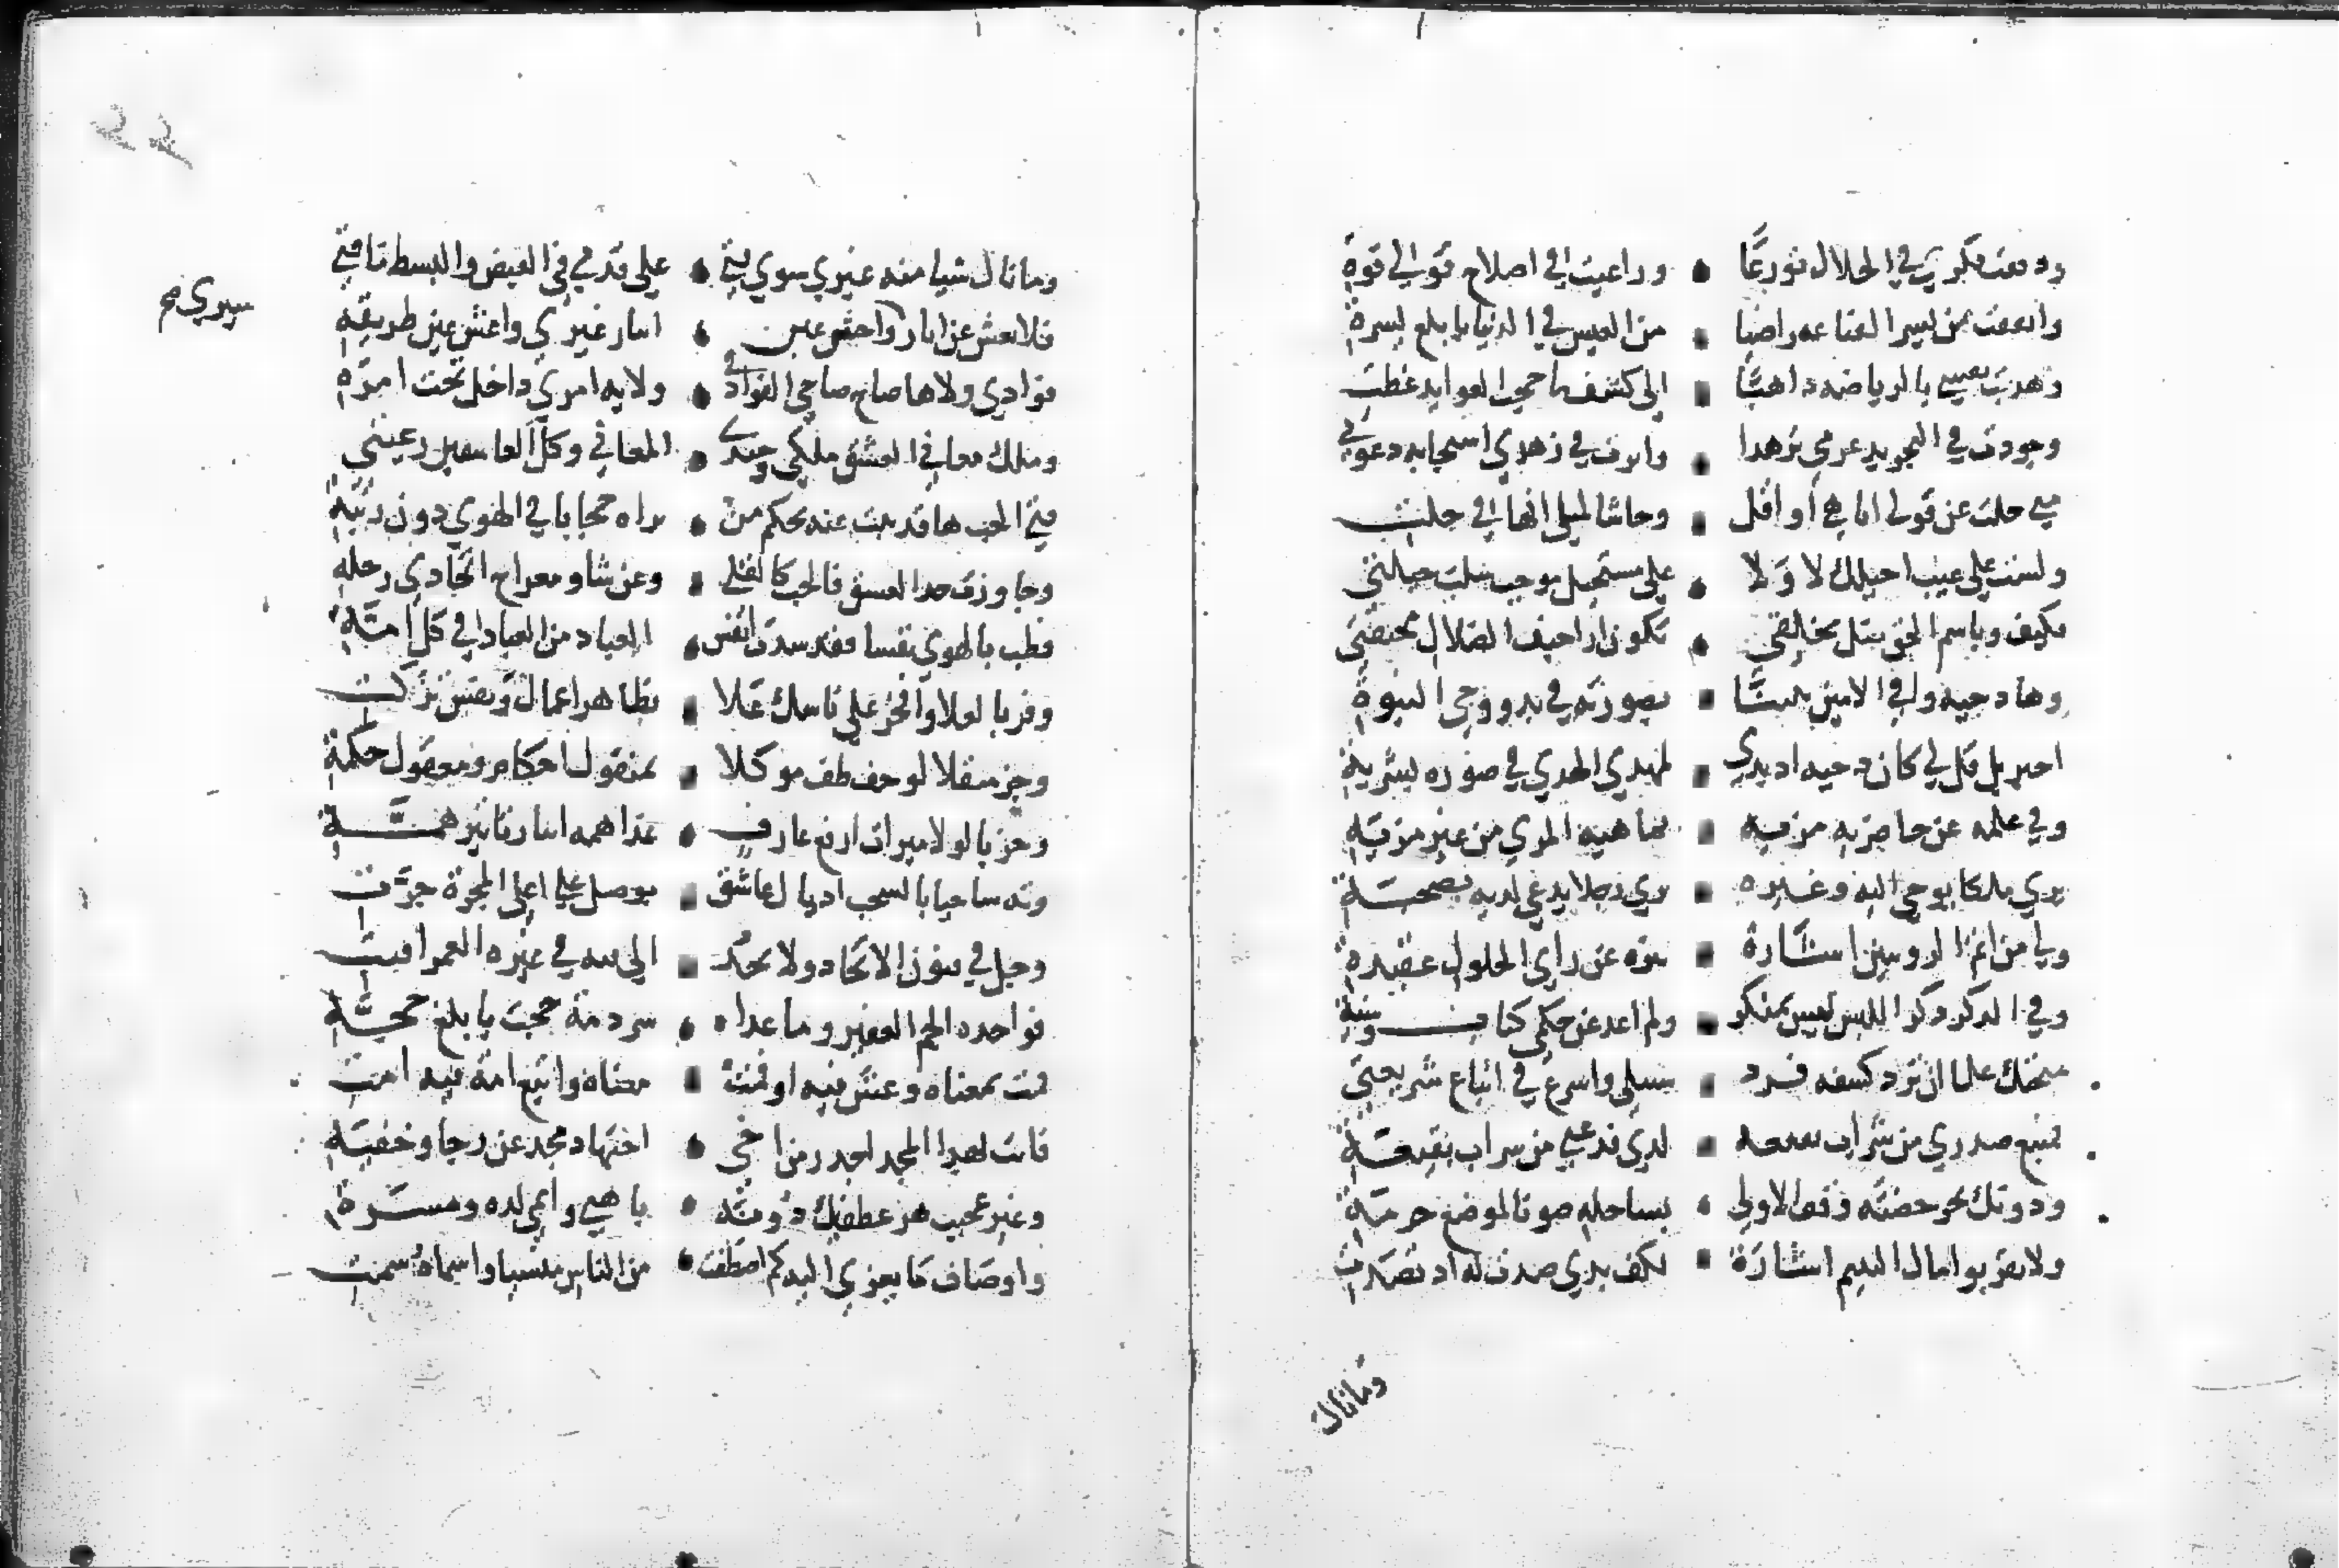 ودققت فكري في الحلال تورعا • وراعيت في اصلاح قوتي قوة
وانفقت من يسر القناعه راضيا • من العيش في الدنيا بايلغ يسرة
وهذبت نفسي بالرياضه ذاهبا • الى كشف ما حجب العوايد غطت
وجردت في التجريد عزمي تزهدا • واثرت في زهدي استجابه دعوتي
متي حلت عن قولي انا هي او اقل • وحاشا لمثلي انها في حلت
ولست علي غيب احيلك لا ولا • علي مستحيل موجب سلب حيلتي
فكيف وباسم الحق ظل تخلقي • تكون اراجيف الضلال مخيفتي
وها دحيه وافي الامين نبينا • بصورته في بدو وحي النبوة
اجبريل قل لي كان دحيه اذ بدي • لمهدي الهدي في صوره بشرية
وفي علمه عن حاضريه مزيه • بماهية المري من غير مزية
يري ملكا يوحي اليه وغيره • يري رجلا يدعي لديه بصحبة
ولي من اتم الرويتين اشارة • تنزه عن راي الحلول عقيدة
وفي الذكر ذكر اللبس ليس بمنكر • ولم اعد عن حكمي كتاب وسنة
منحتك علما ان ترد كشفه فرد • سبيلي واشرع في اتباع شريعتي
فمنبع صدري من شراب نقيعه • لدي فدعني من سراب بقيعة
ودونك بحر خضته وقف الاولي • بساحله صونا لموضع حرمة
ولا تقربوا مال اليتيم اشارة • لكف يدي صدت له اذ تصدت
ومانال
وما نال شيا منه غيري سوي فتي • علي قدمي في القبض والبسط ما فتي
فلا تعش عن اثار واخش غين • ايثار غيري واغش عين طريقه
فوادي ولاها صاح صاحي الفواد في • ولايه امري داخل تحت امرة
وملك معاني العشق ملكي وجندي • المعاني وكل العاشقين رعيتي
فتي الحب ها قد بنت عنه بحكم من • يراه حجابا في الهوي دون رتبة
وجاوزت حد العشق فالحب كالقلي • وعن شاو معراج اتحادي رحلة
فطب بالهوي نفسا فقد سدت انفس • العباد من العباد في كل امة
وفز بالعلا وافخر علي ناسك علا • بظاهر اعمال ونفس تزكت
وجز مثقلا لو خف طف موكلا • بمنقول احكام ومعقول حكمة
وحز بالولا ميراث ارفع عارف • غدا همه ايثار تاثير همة
وته ساحبا بالسحب اذيال عاشق • بوصل علي اعلي المجرة جرت
وجل في فنون الاتحاد ولا تحد • الي فيه في غيره العمر افنت
فواحده الجم الغفير ومن عداه • شرذمة حجت بابلغ حجة
فمت بمعناه وعش فيه او فمت • معناه واتبع امة فيه امت
فانت بهذا المجد اجدر من اخي • اجتهاد مجد عن رجا وخفية
وغير عجيب هز عطفيك دونه • باهني وانهي لذه ومسرة
واوصاف ما يعزي اليه كم اصطفت • من الناس منسيا واسماه اسمت